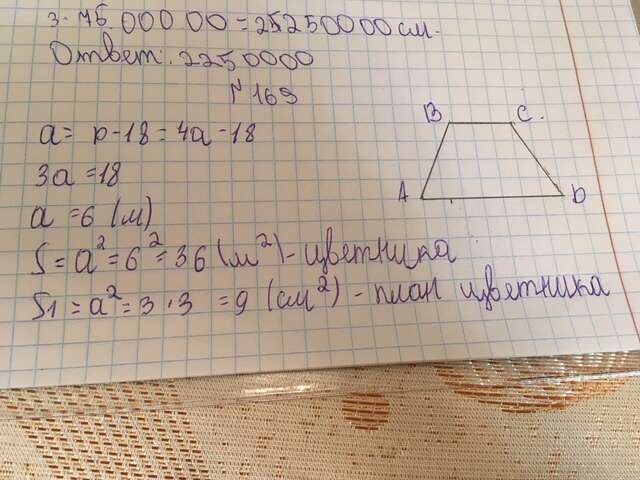 3. 75 000 00 = 25250000 см.
Ответ: 2250000
№ 169
a = p - 18 = 4a - 18
3a = 18
a = 6 (м)
S = a² = 6² = 36 (м²) - цветника
S1 = a² = 3 · 3 = 9 (см²) - план цветника
B C.
A D